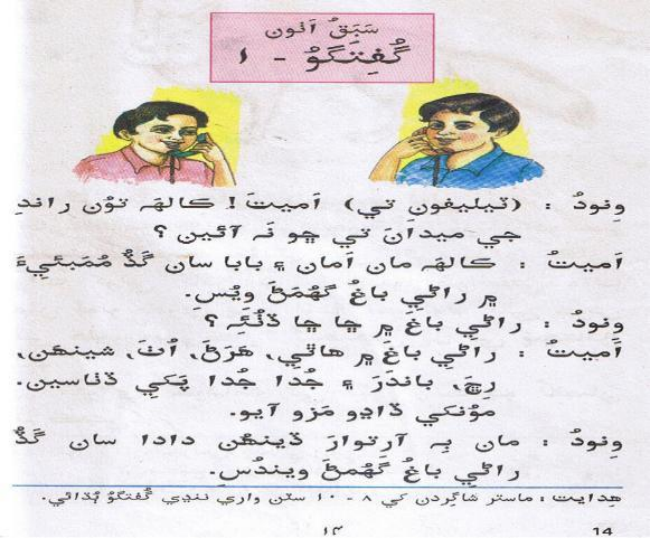 سَبَقُ اَٺون
گُفِتَگوُ - ١
وِنودُ : (ٽيليفونِ تي) اَميتَ! ڪالهہ توُن راندِ
جي ميدانَ تي ڇو نَہ آئين ؟
اَميتُ : ڪالهہ مان اَمان ۽ بابا سان گَڏُ مُمبئيءَ
۾ راڻي باغُ گهُمَڻَ ويُسِ.
وِنودُ : راڻي باغَ ۾ ڇا ڇا ڏِٺُئِہ ؟
اَميتُ : راڻي باغَ ۾ هاٿي، هَرَڻَ، اُٺَ، شينهَن،
رِڇَ، باندَرَ ۽ جُدا جُدا پَکي ڏِٺاسين.
موُنکي ڏاڍو مَزو آيو.
وِنودُ : مان بِہ آرتوارَ ڏينهُن دادا سان گَڏُ
راڻي باغُ گهُمَڻَ ويندُسِ.
هِدايت : ماستر شاگِردن کي ٨ - ١٠ سِٽن واري ننڍي گُفتگوُ ٻُڌائي.
١٤
14